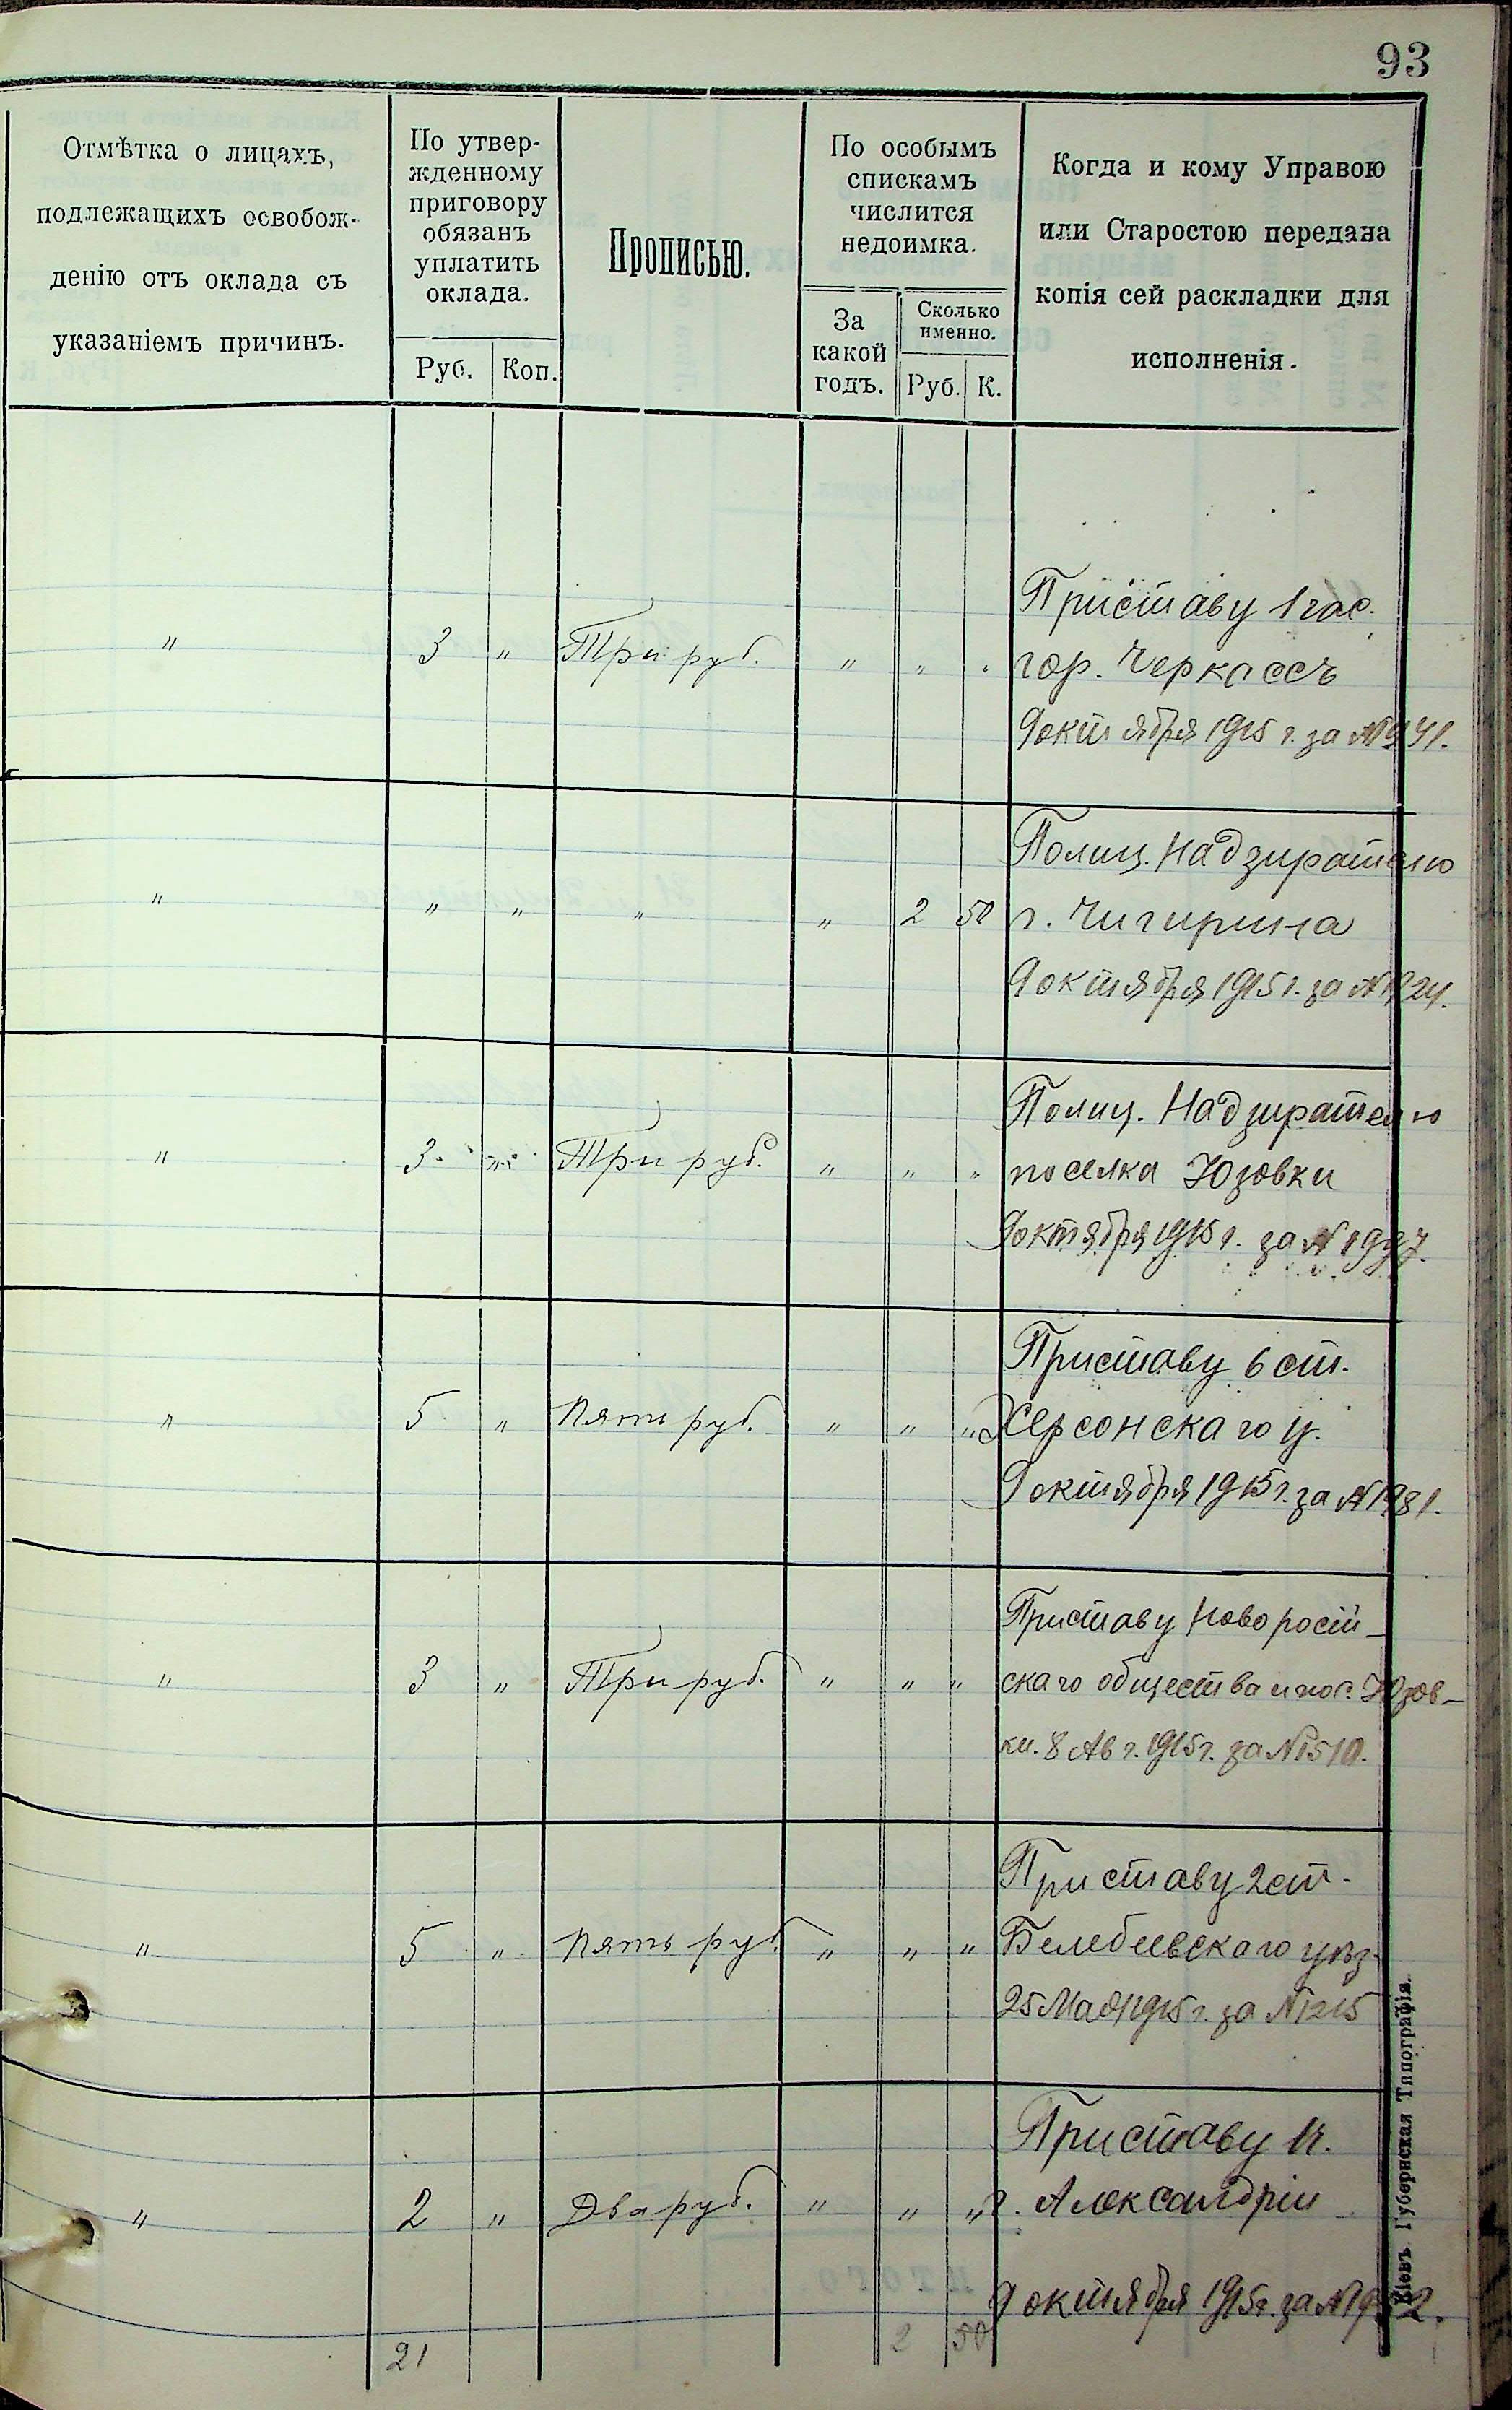 93
Отмѣтка о лицахъ,
подлежащихъ освобож-
денію отъ оклада съ
указаніемъ причинъ.
По утвер-
жденному
приговору
обязанъ
уплатить
оклада.
Руб. Коп.
Прописью.
По особымъ
спискамъ
числится
недоимка.
За
какой
годъ.
Сколько
именно.
Руб. К.
Когда и кому Управою
или Старостою передана
копія сей раскладки для
исполненія.
Приставу 1 час.
" 3 " Три руб. " " " гор. Черкассъ
9 октября 1915 г. за №
Полиц. Надзирателю
" " " " " 2 50 г. Чигирина
9 октября 1915 г. за №
Полиц. Надзирателю
" 3 " Три руб. " " " поселка Юзовки
9 октября 1915 г. за №
Приставу 6 ст.
" 5 " Пять руб. " " " Херсонскаго у.
9 октября 1915 г. за № 1981.
Приставу Новоросій-
" 3 " Три руб. " " " скаго общества и пос. Юзов-
ки. 8 Авг. 1915 г. за № 1510.
Приставу 2 ст.
" 5 " Пять руб. " " " Белебеевскаго уѣз.
25 Мая 1915 г. за № 1215
Приставу 1 ч.
" 2 " Два руб. " " " г. Александріи
9 октября 1915 г. за №
21 2 50
Кіевъ. Губернская Типографія.